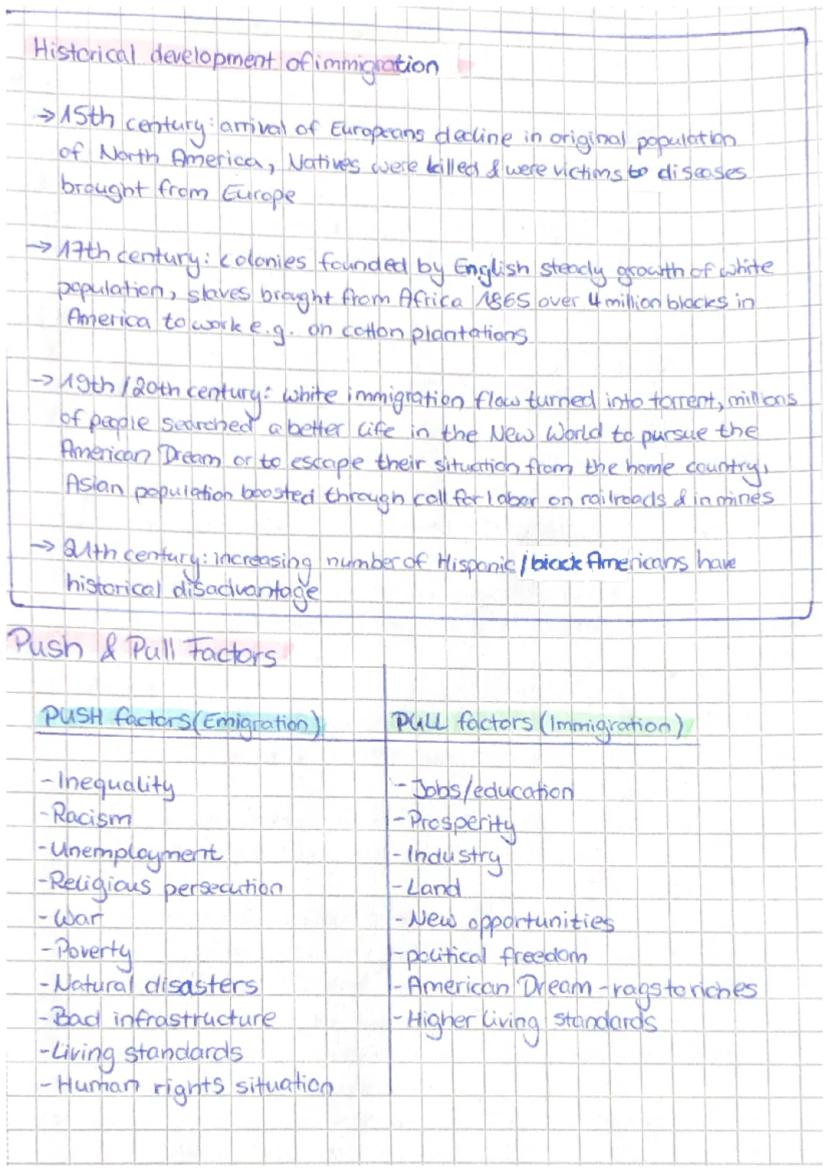 Historical development of immigration
→ 15th century: arrival of Europeans decline in original population
of North America, Natives were killed & were victims to diseases
brought from Europe
→ 17th century: colonies founded by English steady growth of white
population, slaves brought from Africa 1865 over 4 million blacks in
America to work e.g. on cotton plantations
→ 19th/20th century: white immigration flow turned into torrent, millions
of people searched a better life in the New World to pursue the
American Dream or to escape their situation from the home country,
Asian population boosted through call for labor on railroads & in mines
→ 21th century: increasing number of Hispanic/black Americans have
historical disadvantage
Push & Pull Factors
PUSH factors (Emigration)
- Inequality
- Racism
- Unemployment
- Religious persecution
- War
- Poverty
- Natural disasters
- Bad infrastructure
- Living standards
- Human rights situation
PULL factors (Immigration)
- Jobs/education
- Prosperity
- Industry
- Land
- New opportunities
- political freedom
- American Dream - rags to riches
- Higher living standards